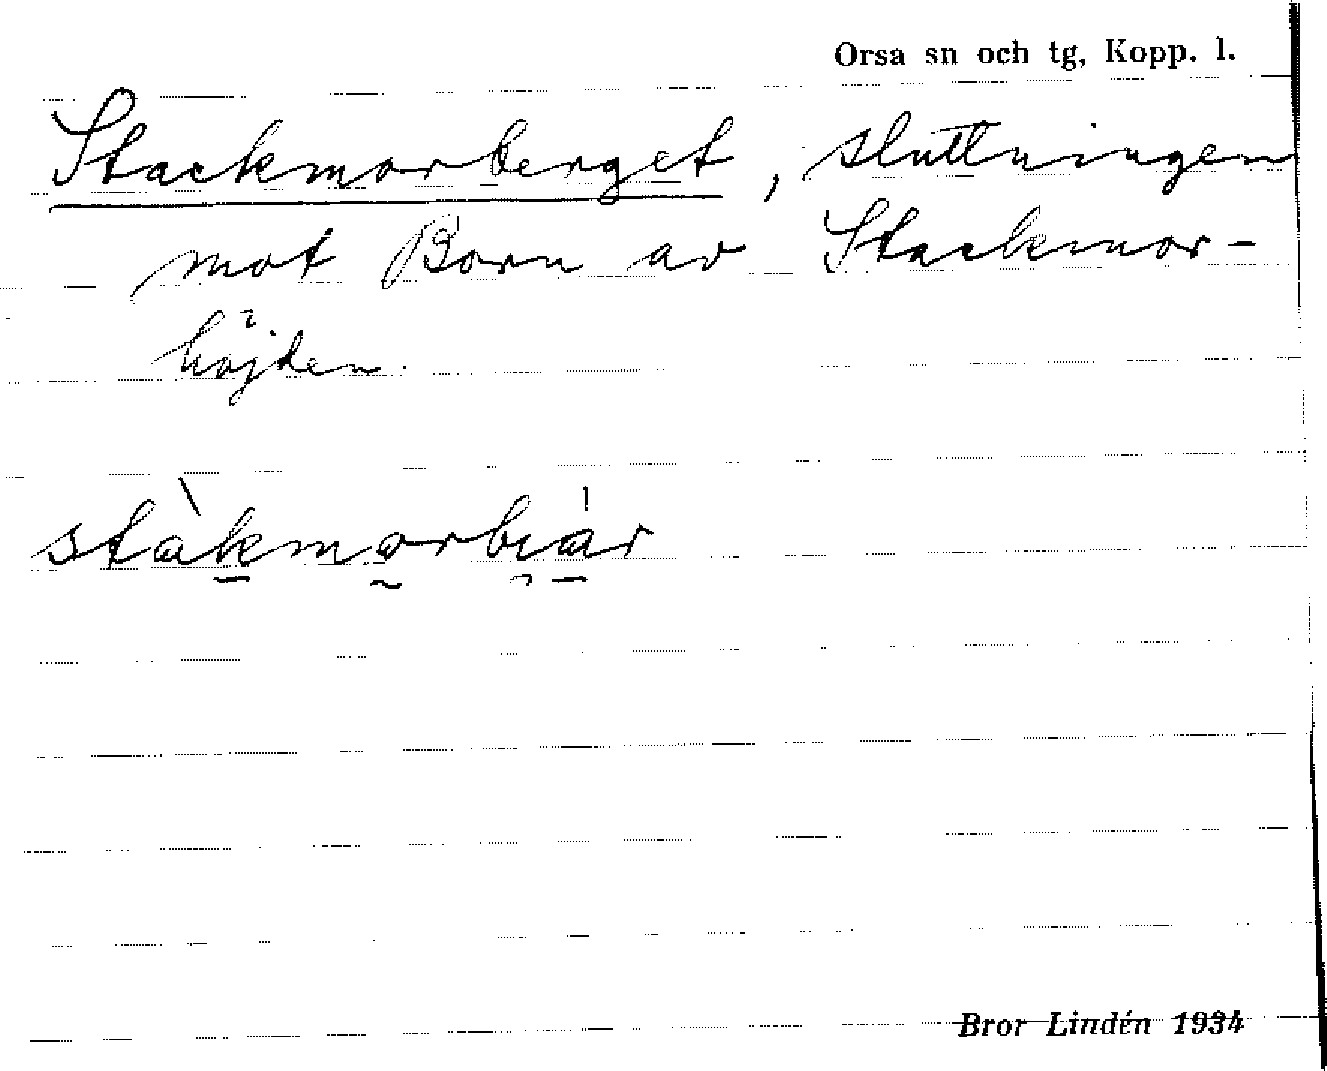 Orsa sn och tg, Kopp. l.
Stackmorberget, sluttningen
mot Born av Stackmor-
höjden.
stàkmorbıár
Bror Lindén 1934